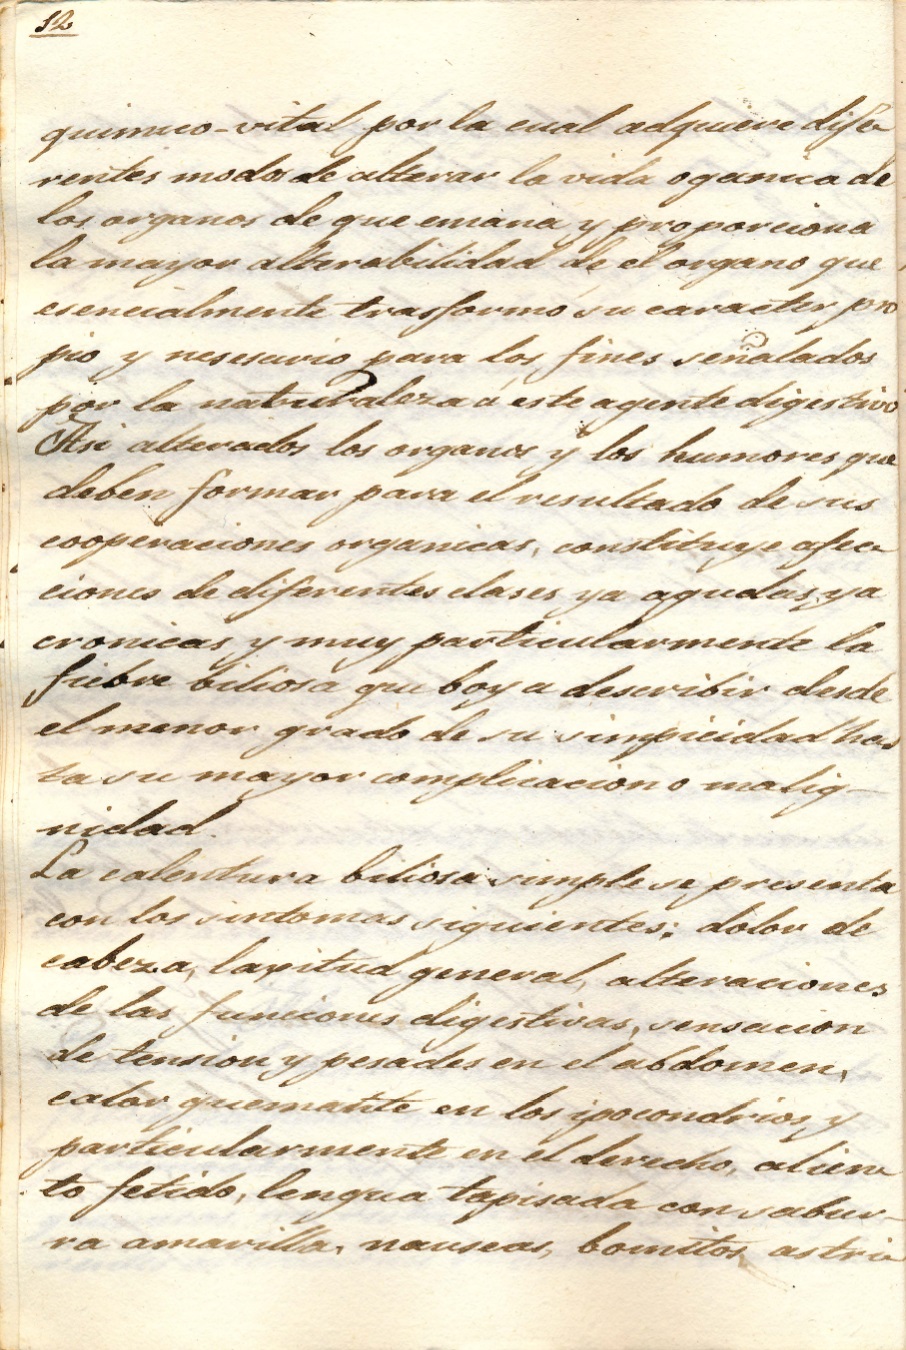 12
quimico-vital por la cual adquiere dife-
rentes modos de alterar la vida oganica de
los organos de que emana y proporciona
la mayor alterabilidad de el organo que
esencialmente trasformó su caracter pro
pio y nesesario para los fines señalados
por la naturaleza á este agente digestivo
Asi alterados los organos y los humores que
deben formar para el resultado de sus
cooperaciones organicas, constituye afec-
ciones de diferentes clases ya agudas, ya
cronicas, y muy particularmente la
fiebre biliosa que boy a describir desde
el menor grado de su simpicidad has
ta su mayor complicacion o malig-
nidad.
La calentura biliosa simple se presenta
con los sintomas siguientes: dolor de
cabeza, lapitud general, alteraciones
de las funciones digestivas, sensacion
de tension y pesades en el abdomen,
calor quemante en los ipocondrios, y
particularmente en el derecho, alien-
to fetido, lengua tapisada con sabur-
ra amarilla, nauseas, bomitos, astric